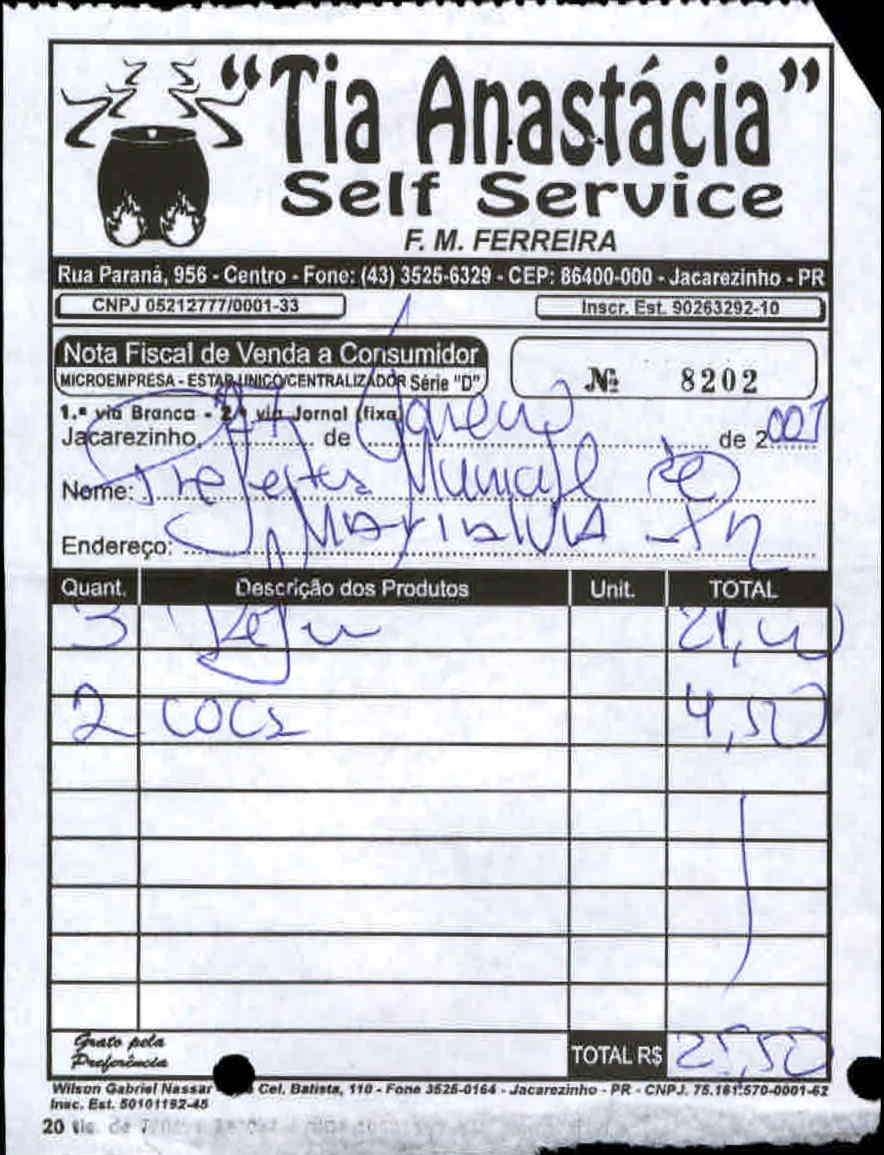 "Tia Anastácia"
Self Service
F. M. FERREIRA
Rua Paraná, 956 - Centro - Fone: (43) 3525-6329 - CEP: 86400-000 - Jacarezinho - PR
CNPJ 05212777/0001-33
Inscr. Est. 90263292-10
Nota Fiscal de Venda a Consumidor
MICROEMPRESA - ESTAB. UNICO/CENTRALIZADOR Série "D"
Nº 8202
1.ª via Branca - 2.ª via Jornal (fixa)
Jacarezinho, 27 de Janeiro de 200
Nome: Prefeitura Municipal de
Endereço: Marialva - Pr
Quant. Descrição dos Produtos Unit. TOTAL
3 Refei 21,00
2 COCs 4,50
Grato pela
Preferência
TOTAL R$ 25,50
Wilson Gabriel Nassar Cel. Batista, 110 - Fone 3525-0164 - Jacarezinho - PR - CNPJ. 75.161.570-0001-62
Insc. Est. 50101192-45
20 tls. de